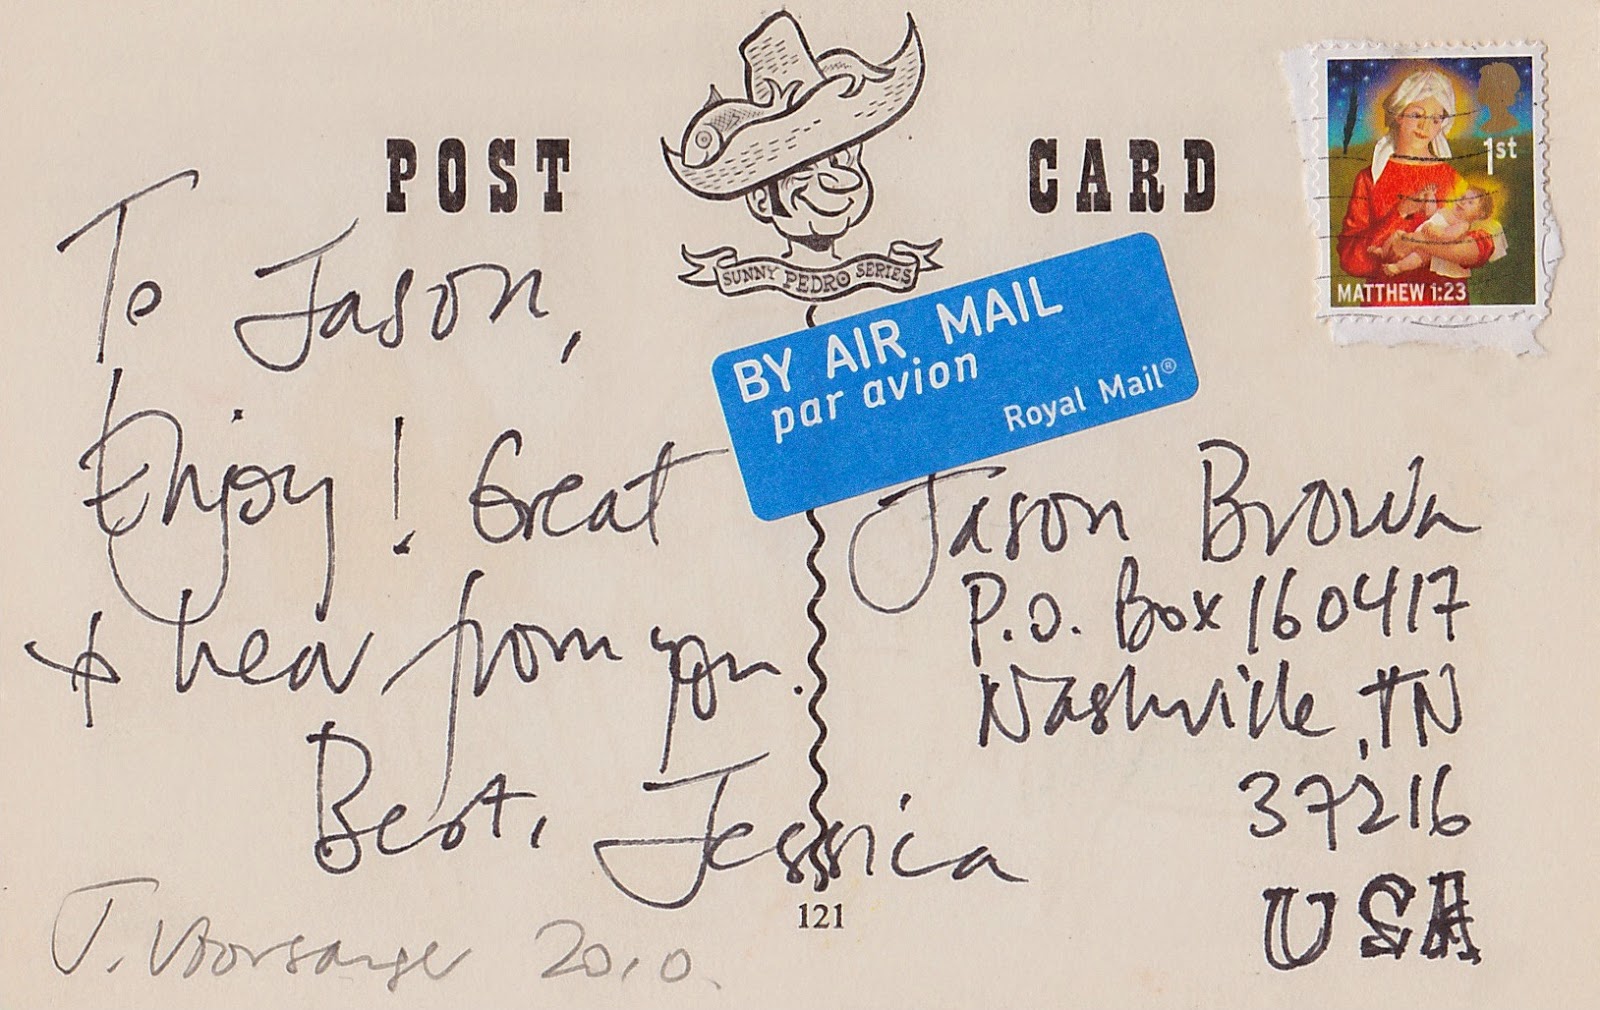 POST CARD
SUNNY PEDRO SERIES
1st
MATTHEW 1:23
BY AIR MAIL
par avion
Royal Mail®
To Jason,
Enjoy! Great
+ hear from you.
Best, Jessica
J. Voorsanger 2010.
Jason Brown
P.O. Box 160417
Nashville, TN
37216
USA
121